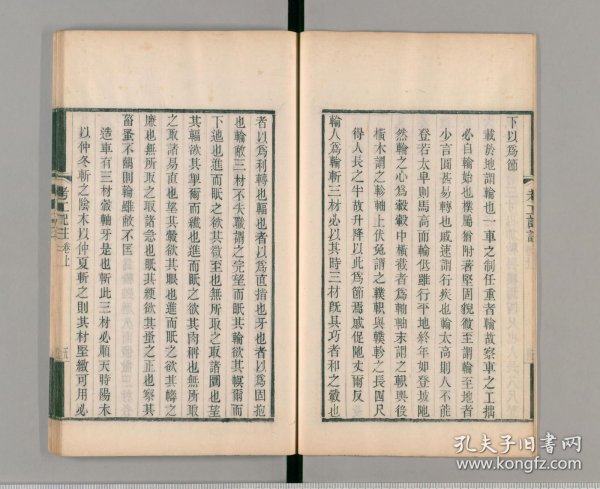 考工記註
下以爲節
載於地謂輪也一車之制任重者輪故察車之工拙
必自輪始也樸屬猶附著堅固貌微至謂輪至地者
少言圜甚易轉也戚速謂行疾也輪太高則人不能
登若太卑則馬高而輪低雖行平地終年如登坡阤
然輪之心爲轂轂中橫截者爲軸軸末謂之軹輿後
橫木謂之軫軸上伏兔謂之轐軹與轐軫之長四尺
得人長之半故升降以此爲節焉戚促阤丈爾反
輪人爲輪斬三材必以其時三材旣具巧者和之轂也
者以爲利轉也輻也者以爲直指也牙也者以爲固抱
也輪敝三材不失職謂之完望而眡其輪欲其幎爾而
下迆也進而眡之欲其微至也無所取之取諸圜也望
其輻欲其揱爾而纖也進而眡之欲其肉稱也無所取
之取諸易直也望其轂欲其眼也進而眡之欲其幬之
廉也無所取之取諸急也眡其綆欲其蚤之正也察其
菑蚤不齵則輪雖敝不匡
造車有三材轂軸牙是也斬此三材必順天時陽木
以仲冬斬之陰木以仲夏斬之則其材堅緻可用必
考工記註卷上
五
孔夫子旧书网
www.kongfz.com